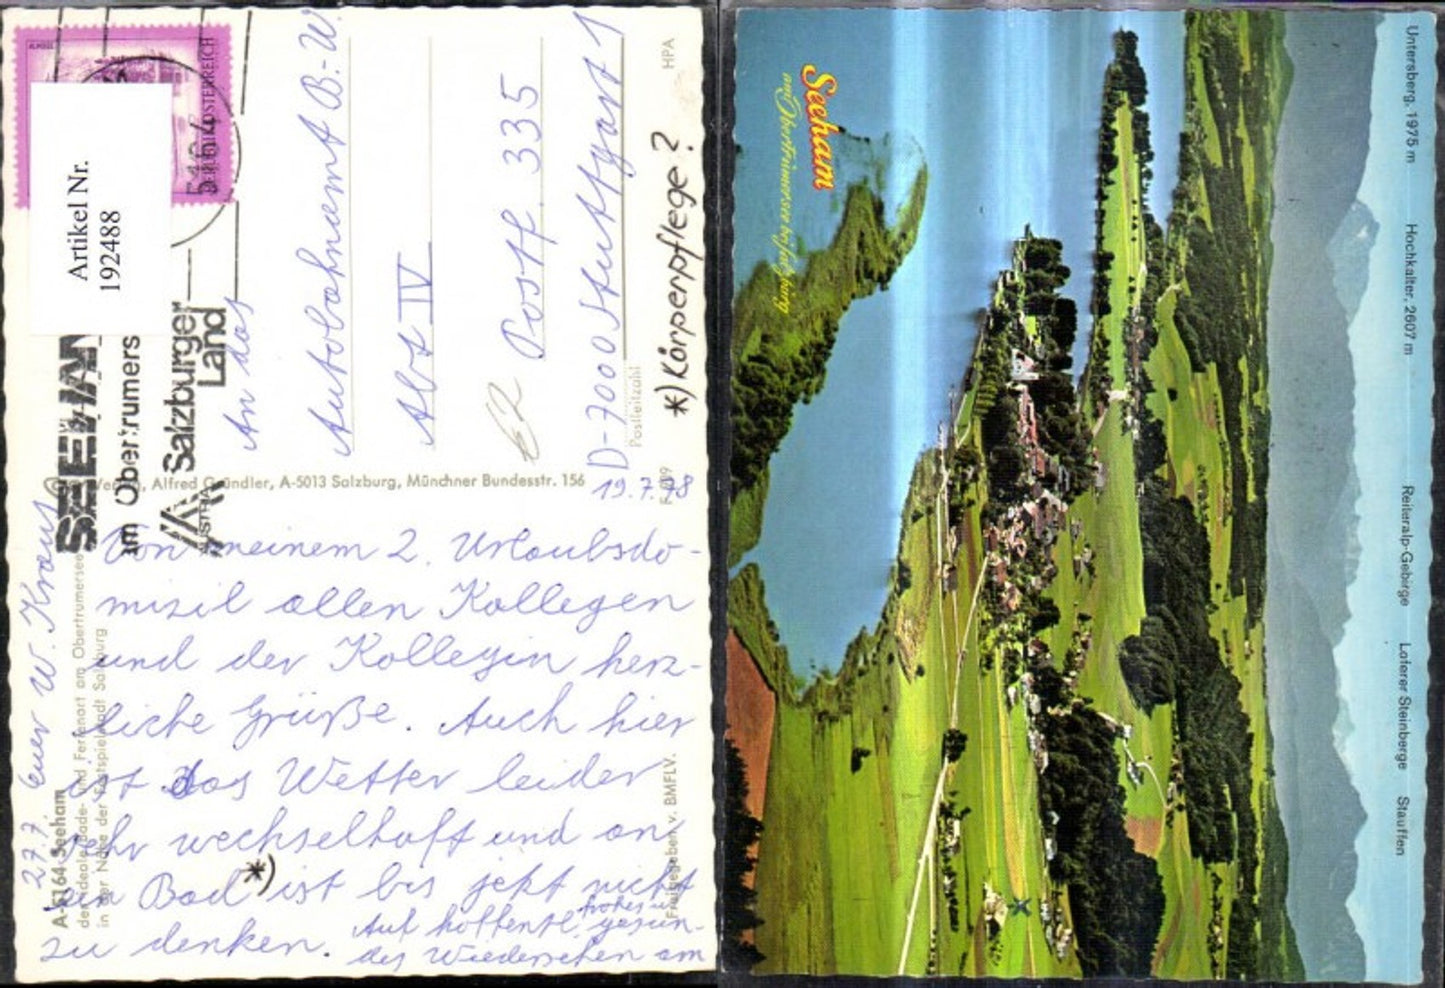 REPUBLIK ÖSTERREICH
5164
Artikel Nr.
192488
SEEHAM
im Obertrumers
Salzburger
Land
AUSTRIA
An das
Autobahnamt B.-W.
Abt IV
Postf. 335
D-7000 Stuttgart 1
Postleitzahl
HPA
*) Körperpflege?
Verlag, Alfred Gründler, A-5013 Salzburg, Münchner Bundesstr. 156
19.7.78
Von meinem 2. Urlaubsdo-
mizil allen Kollegen
und der Kollegin herz-
liche Grüße. Auch hier
ist das Wetter leider
sehr wechselhaft und an
ein Bad *) ist bis jetzt nicht
zu denken. Auf hoffentl. frohes u. gesun-
des Wiedersehen am
27.7. Euer W. Kraus
A-5164 Seeham
der ideale Bade- und Ferienort am Obertrumersee
in der Nähe der Festspielstadt Salzburg
Freigegeben v. BMFLV.
Seeham
am Obertrumersee bei Salzburg
Untersberg, 1975 m
Hochkalter, 2607 m
Reiteralp-Gebirge
Loferer Steinberge
Stauffen